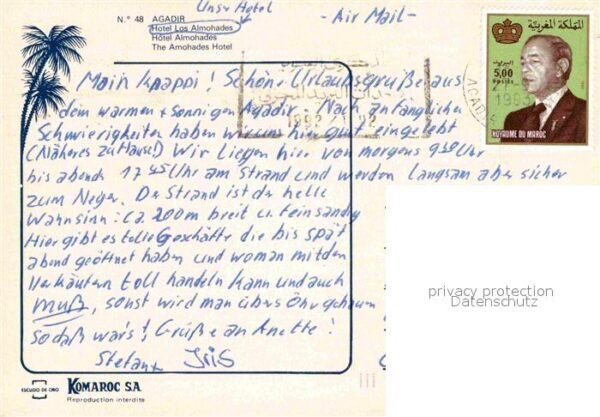 Unser Hotel
- Air Mail -
N.° 48 AGADIR
Hotel Los Almohades
Hôtel Almohades
The Amohades Hotel
5,00
POSTES
المملكة المغربية
البريد
ROYAUME DU MAROC
AGADIR
1992
Main Knappi! Schöne Urlaubsgrüße aus
dem warmen + sonnigen Agadir. Nach anfänglichen
Schwierigkeiten haben wir uns hier gut eingelebt
(Näheres zu Hause!) Wir liegen hier von morgens 9 30 Uhr
bis abends 17 45 Uhr am Strand und werden langsam aber sicher
zum Neger. Der Strand ist der helle
Wahnsinn: ca. 200m breit u. feinsandig
Hier gibt es tolle Geschäfte die bis spät
abend geöffnet haben und wo man mit den
Verkäufern toll handeln kann und auch
muß, sonst wird man übers Ohr gehauen
so daß wärs! Grüße an Anette!
Stefan + Iris
privacy protection
Datenschutz
ESCUDO DE ORO
KOMAROC S.A.
Reproduction interdite